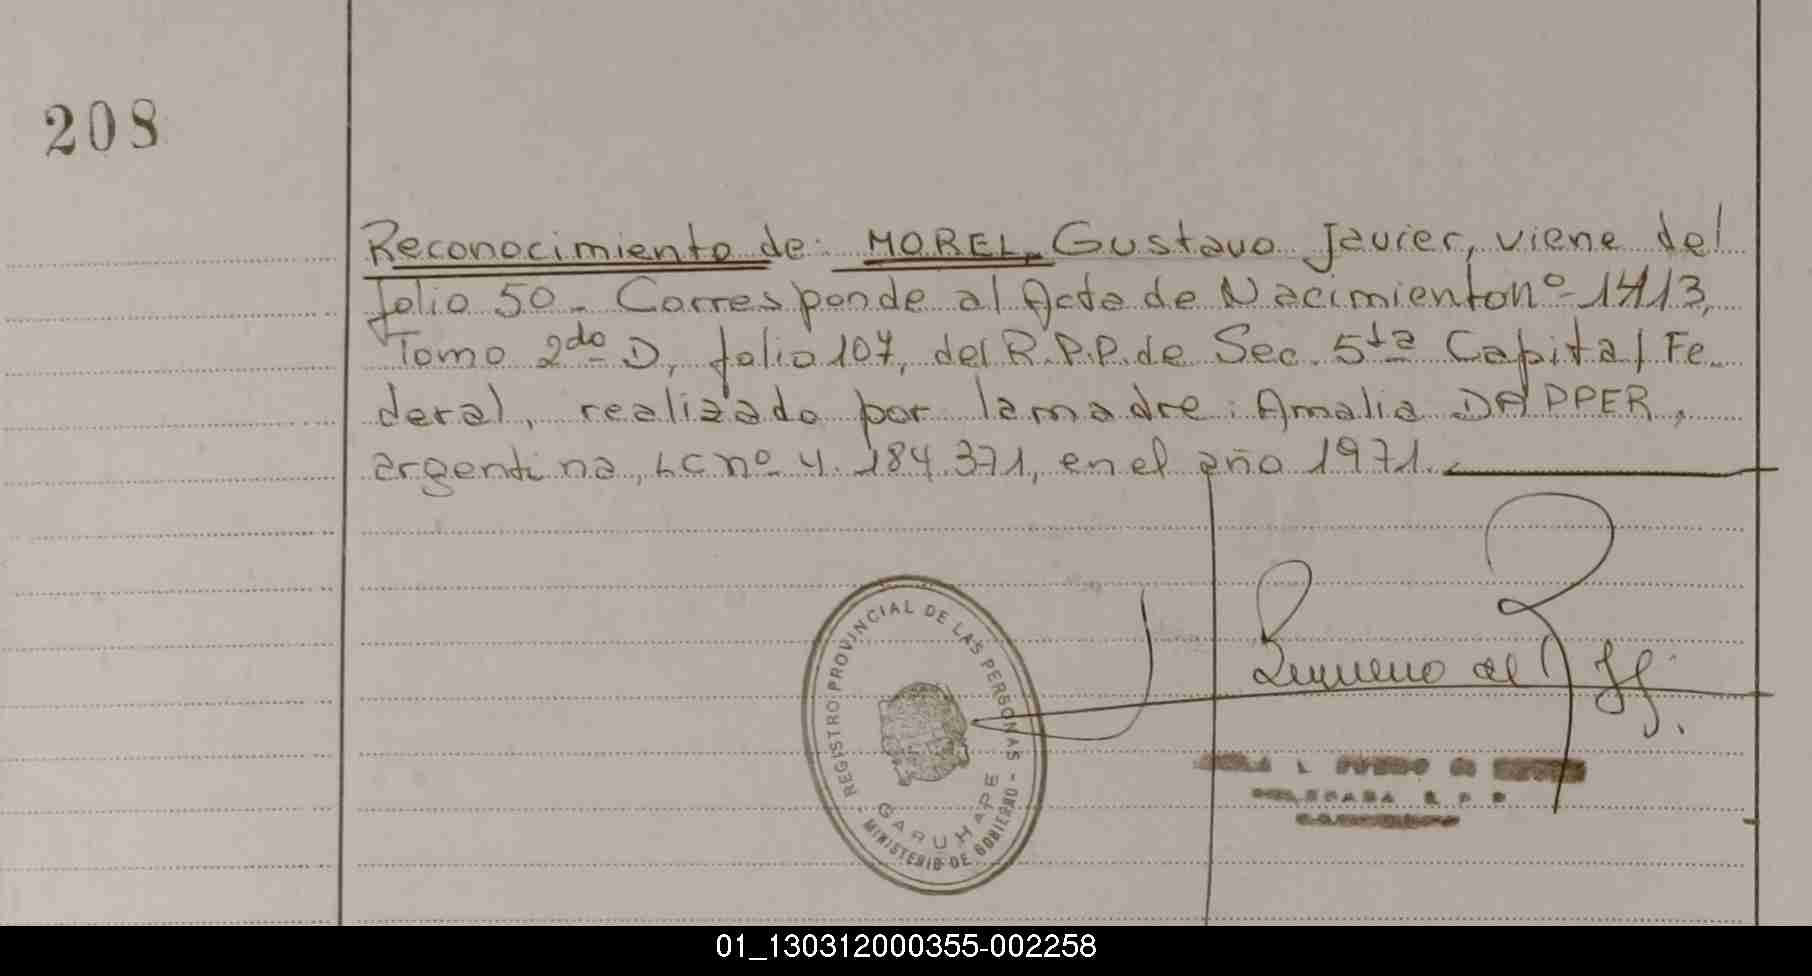 208
Reconocimiento de: MOREL, Gustavo Javier, viene del
folio 50.- Corresponde al Acta de Nacimiento nº 1413,
Tomo 2do D, folio 107, del R.P.P. de Sec. 5ta Capital Fe-
deral, realizado por la madre: Amalia DAPPER,
argentina, LC nº 4.184.371, en el año 1971.
- REGISTRO PROVINCIAL DE LAS PERSONAS -
GARUHAPE
MINISTERIO DE GOBIERNO
01_130312000355-002258